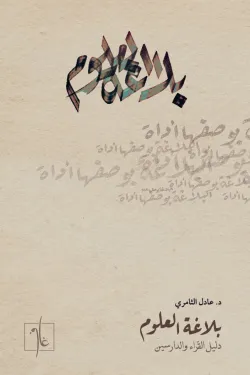 بلاغة العلوم
بوصفها أداة
البلاغة بوصفها أداة
البلاغة بوصفها أداة
بوصفها أداة
البلاغة بوصفها أداة
د. عادل الثامري
بلاغة العلوم
دليل القراء والدارسين